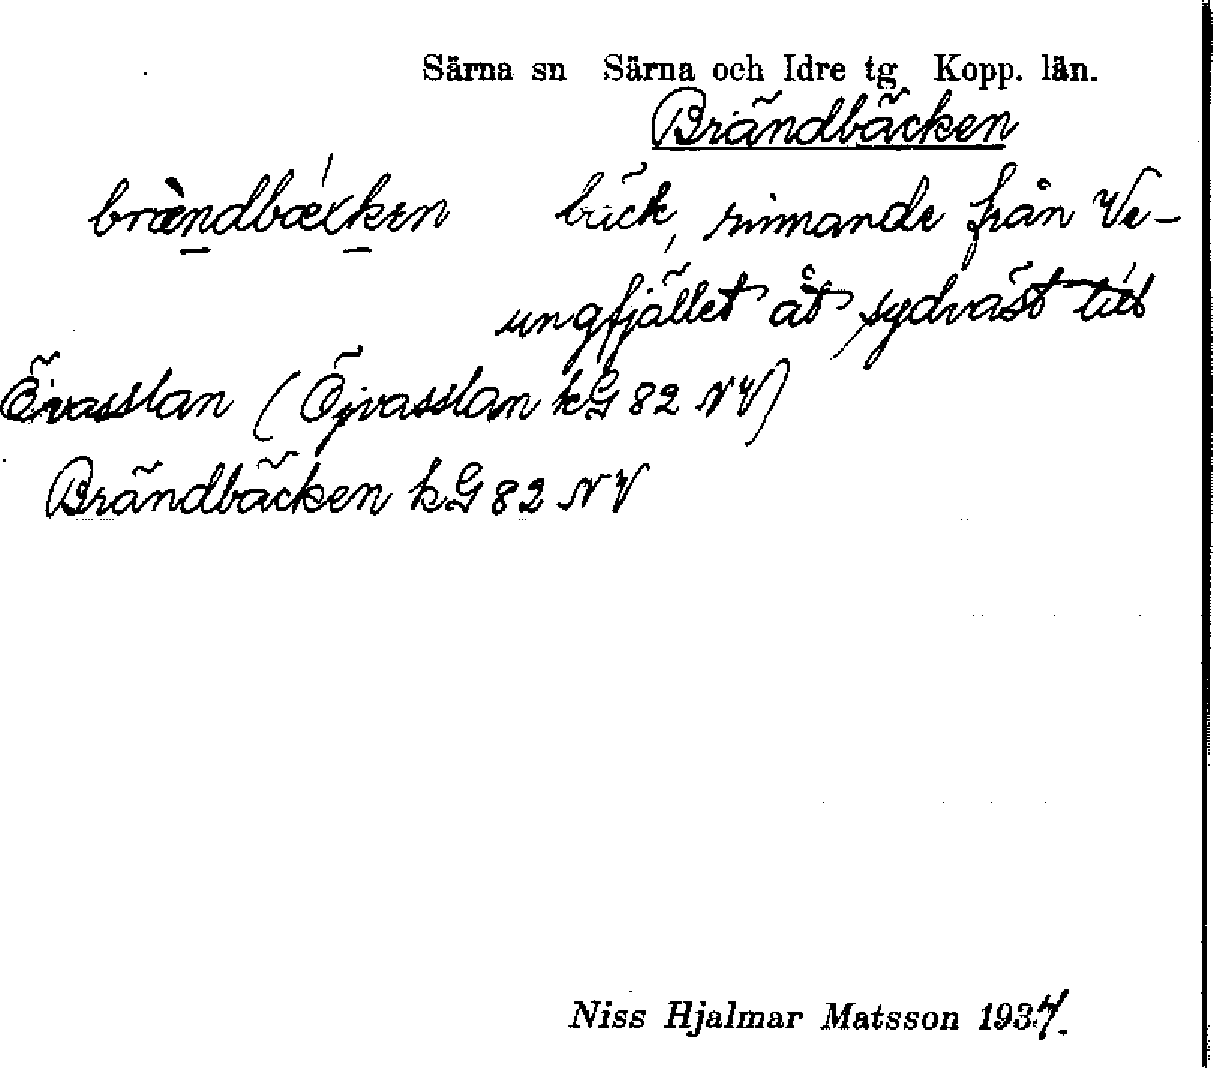 Särna sn Särna och Idre tg Kopp. län.
Brändbäcken
bræ̀ndbǽkken bäck, rinnande från Ve-
ungfjället åt sydväst till
Övasslan (Öjvasslan kG 82 NV)
Brändbäcken kG 82 NV
Niss Hjalmar Matsson 1934.